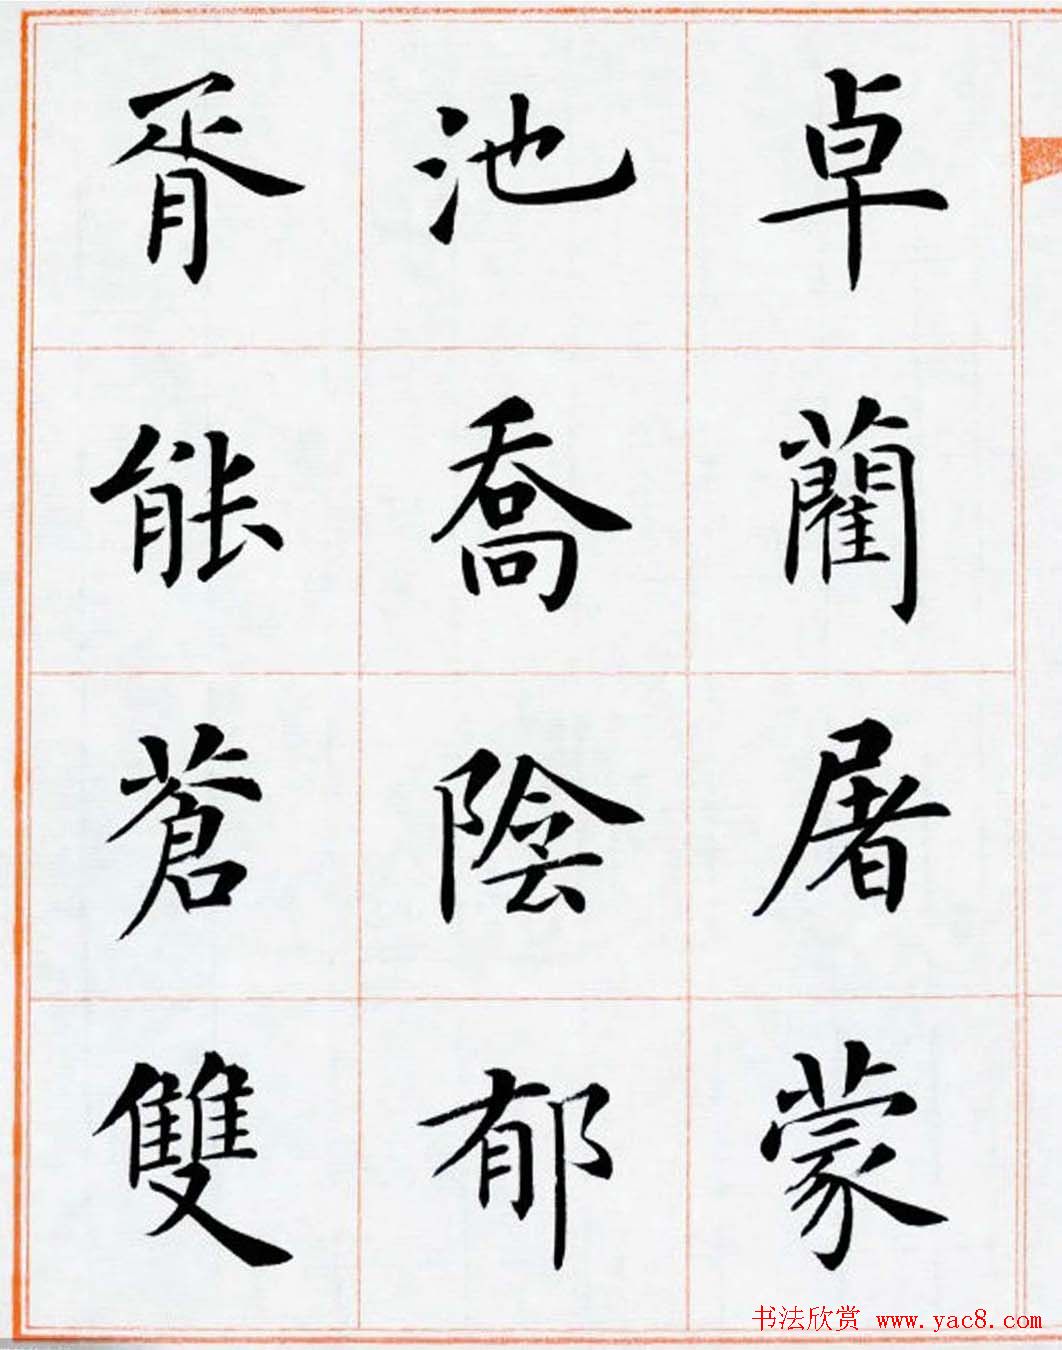 卓藺屠蒙
池喬陰郁
胥能蒼雙
书法欣赏 www.yac8.com